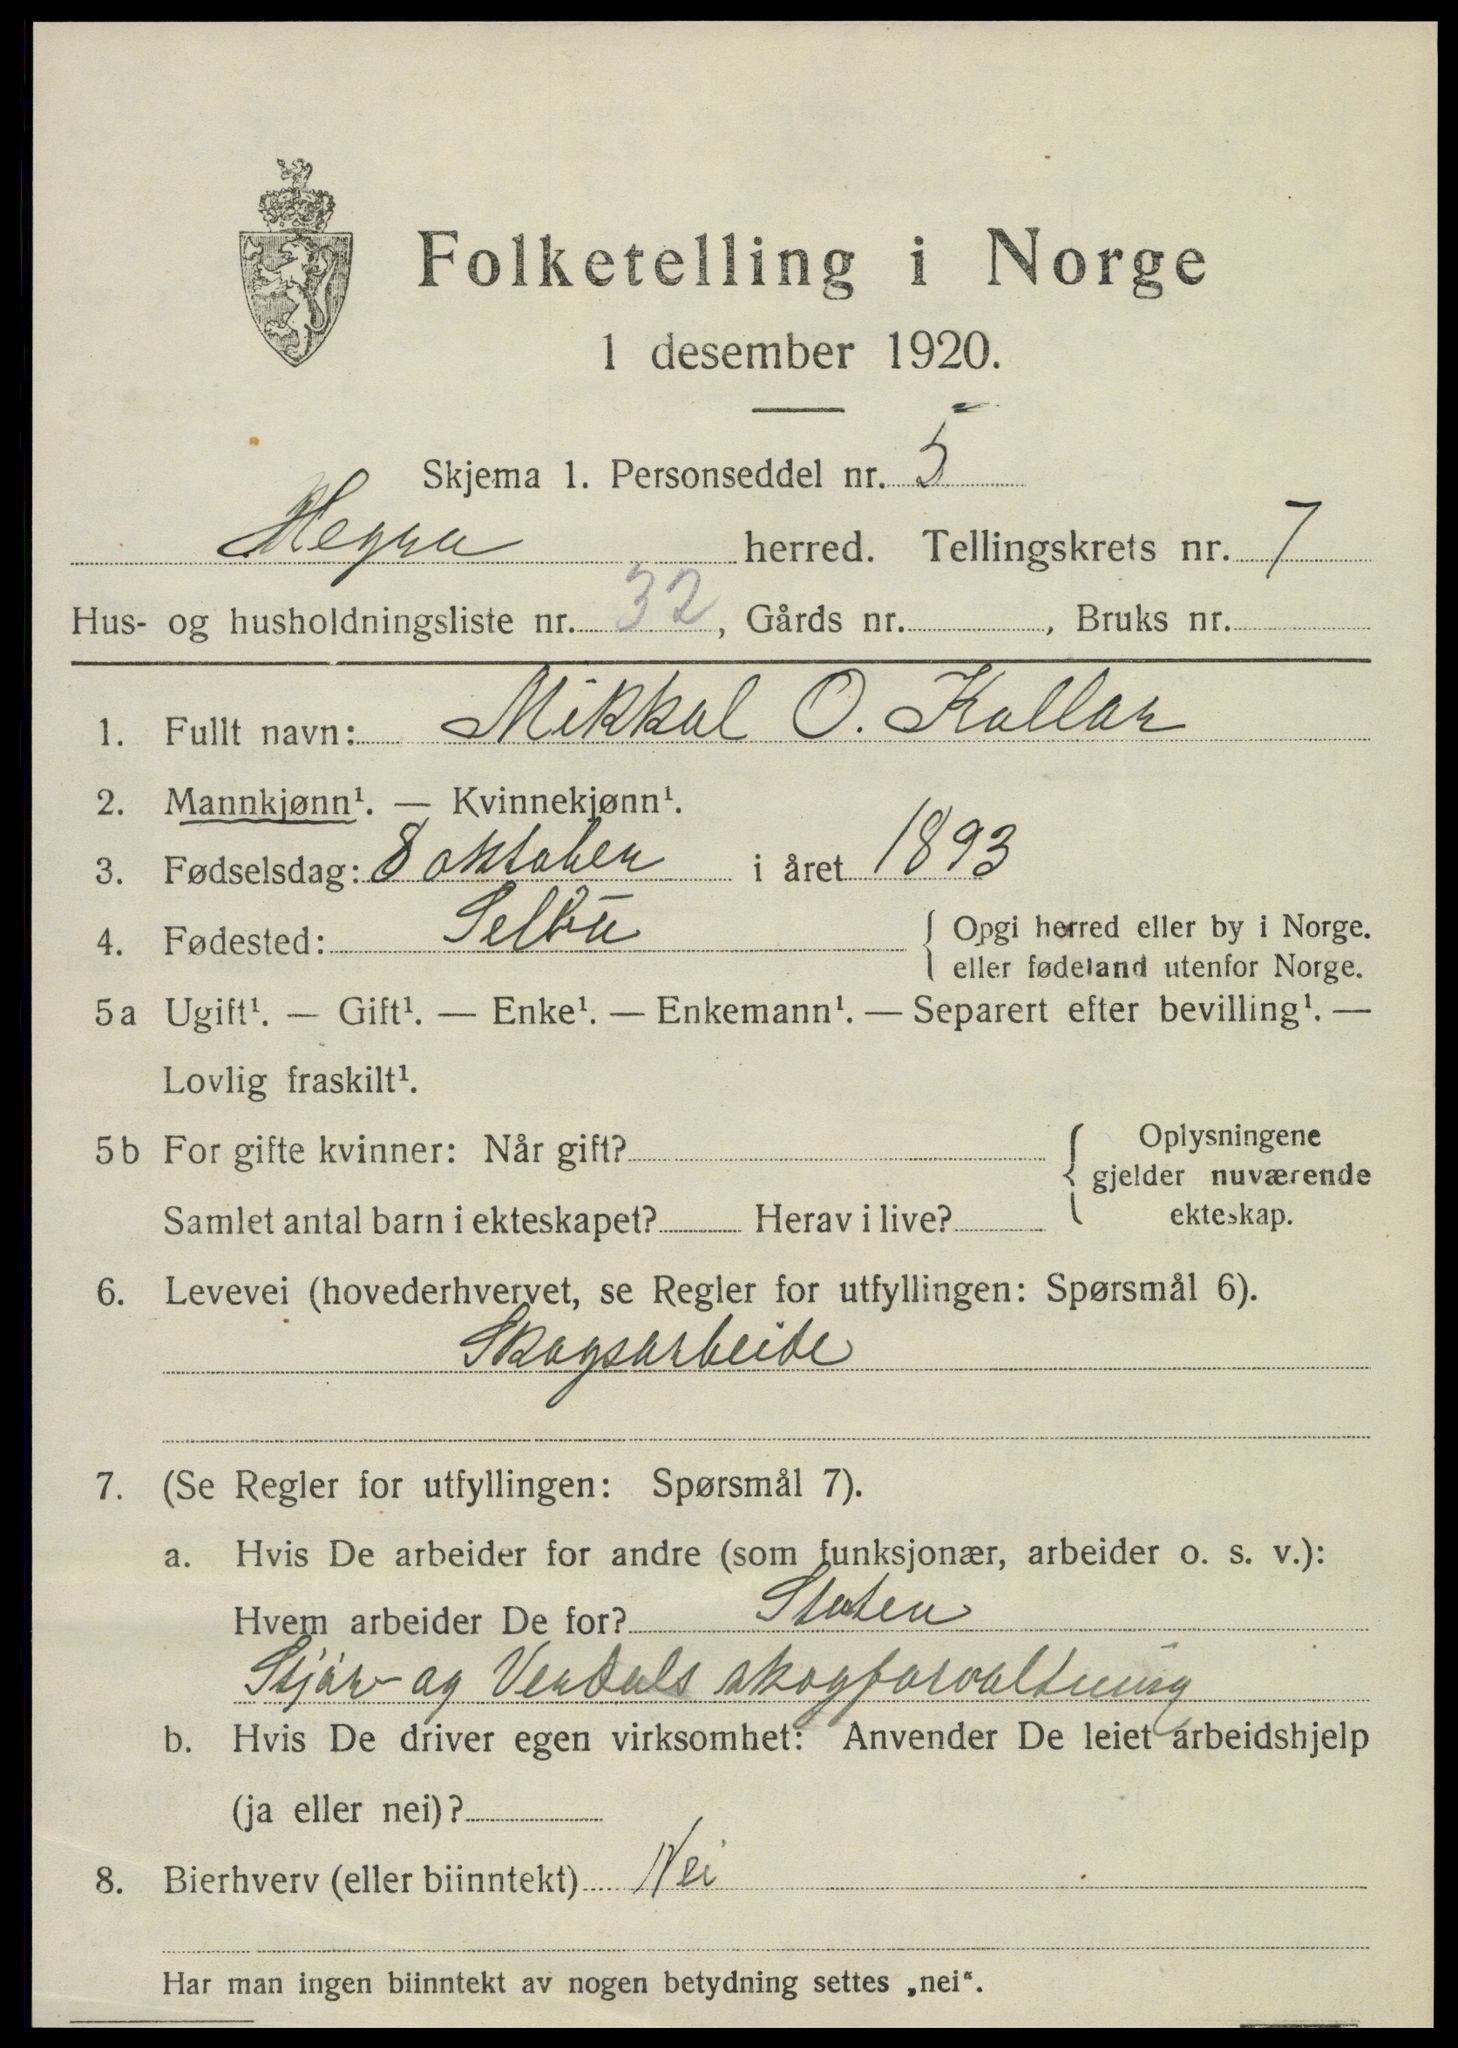 Folketelling i Norge
1 desember 1920.
Skjema 1. Personseddel nr. 5
Hegra herred. Tellingskrets nr. 7
Hus- og husholdningsliste nr. 32, Gårds nr. , Bruks nr.
1. Fullt navn: Mikkal O. Kallar
2. Mannkjønn¹. — Kvinnekjønn¹.
3. Fødselsdag: 8 oktober i året 1893
4. Fødested: Selbu { Opgi herred eller by i Norge.
eller fødeland utenfor Norge.
5a Ugift¹. — Gift¹. — Enke¹. — Enkemann¹. — Separert efter bevilling¹. —
Lovlig fraskilt¹.
5b For gifte kvinner: Når gift? { Oplysningene
gjelder nuværende
Samlet antal barn i ekteskapet? Herav i live? ekteskap.
6. Levevei (hovederhvervet, se Regler for utfyllingen: Spørsmål 6).
Skogsarbeide
7. (Se Regler for utfyllingen: Spørsmål 7).
a. Hvis De arbeider for andre (som funksjonær, arbeider o. s. v.):
Hvem arbeider De for? Staten
Stjør- og Verdals skogforvaltning
b. Hvis De driver egen virksomhet: Anvender De leiet arbeidshjelp
(ja eller nei)?
8. Bierhverv (eller biinntekt) Nei
Har man ingen biinntekt av nogen betydning settes „nei“.